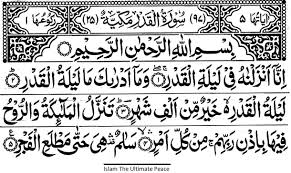 اٰيَاتُهَا ٥ (٩٧) سُوْرَةُ الْقَدْرِ مَكِّيَّةٌ (٢٥) رُكُوْعُهَا ١
بِسْمِ اللّٰهِ الرَّحْمٰنِ الرَّحِيْمِ
اِنَّاۤ اَنْزَلْنٰهُ فِيْ لَيْلَةِ الْقَدْرِ ۝١ وَمَاۤ اَدْرٰىكَ مَا لَيْلَةُ الْقَدْرِ ۝٢
لَيْلَةُ الْقَدْرِ ەۙ خَيْرٌ مِّنْ اَلْفِ شَهْرٍ ۝٣ تَنَزَّلُ الْمَلٰٓئِكَةُ وَالرُّوْحُ
فِيْهَا بِاِذْنِ رَبِّهِمْ ۚ مِنْ كُلِّ اَمْرٍ ۝٤ سَلٰمٌ ۛ هِيَ حَتّٰى مَطْلَعِ الْفَجْرِ ۝٥
Islam The Ultimate Peace